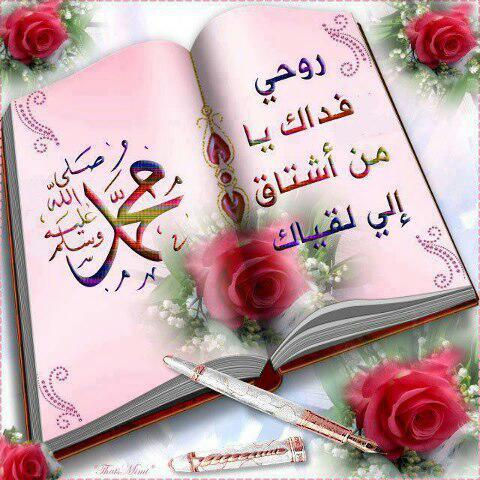 محمد
صلى
الله
عليه
وسلم
روحي
فداك يا
من أشتاق
إلي لقياك
*ThatsMimi*